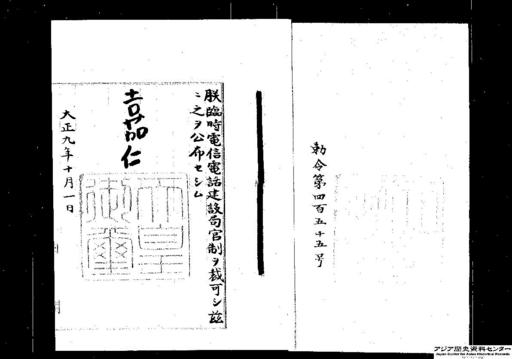 勅令第四百五十五号
朕臨時電信電話建設局官制ヲ裁可シ茲
ニ之ヲ公布セシム
嘉仁
天皇
御璽
大正九年十月一日
アジア歴史資料センター
Japan Center for Asian Historical Records